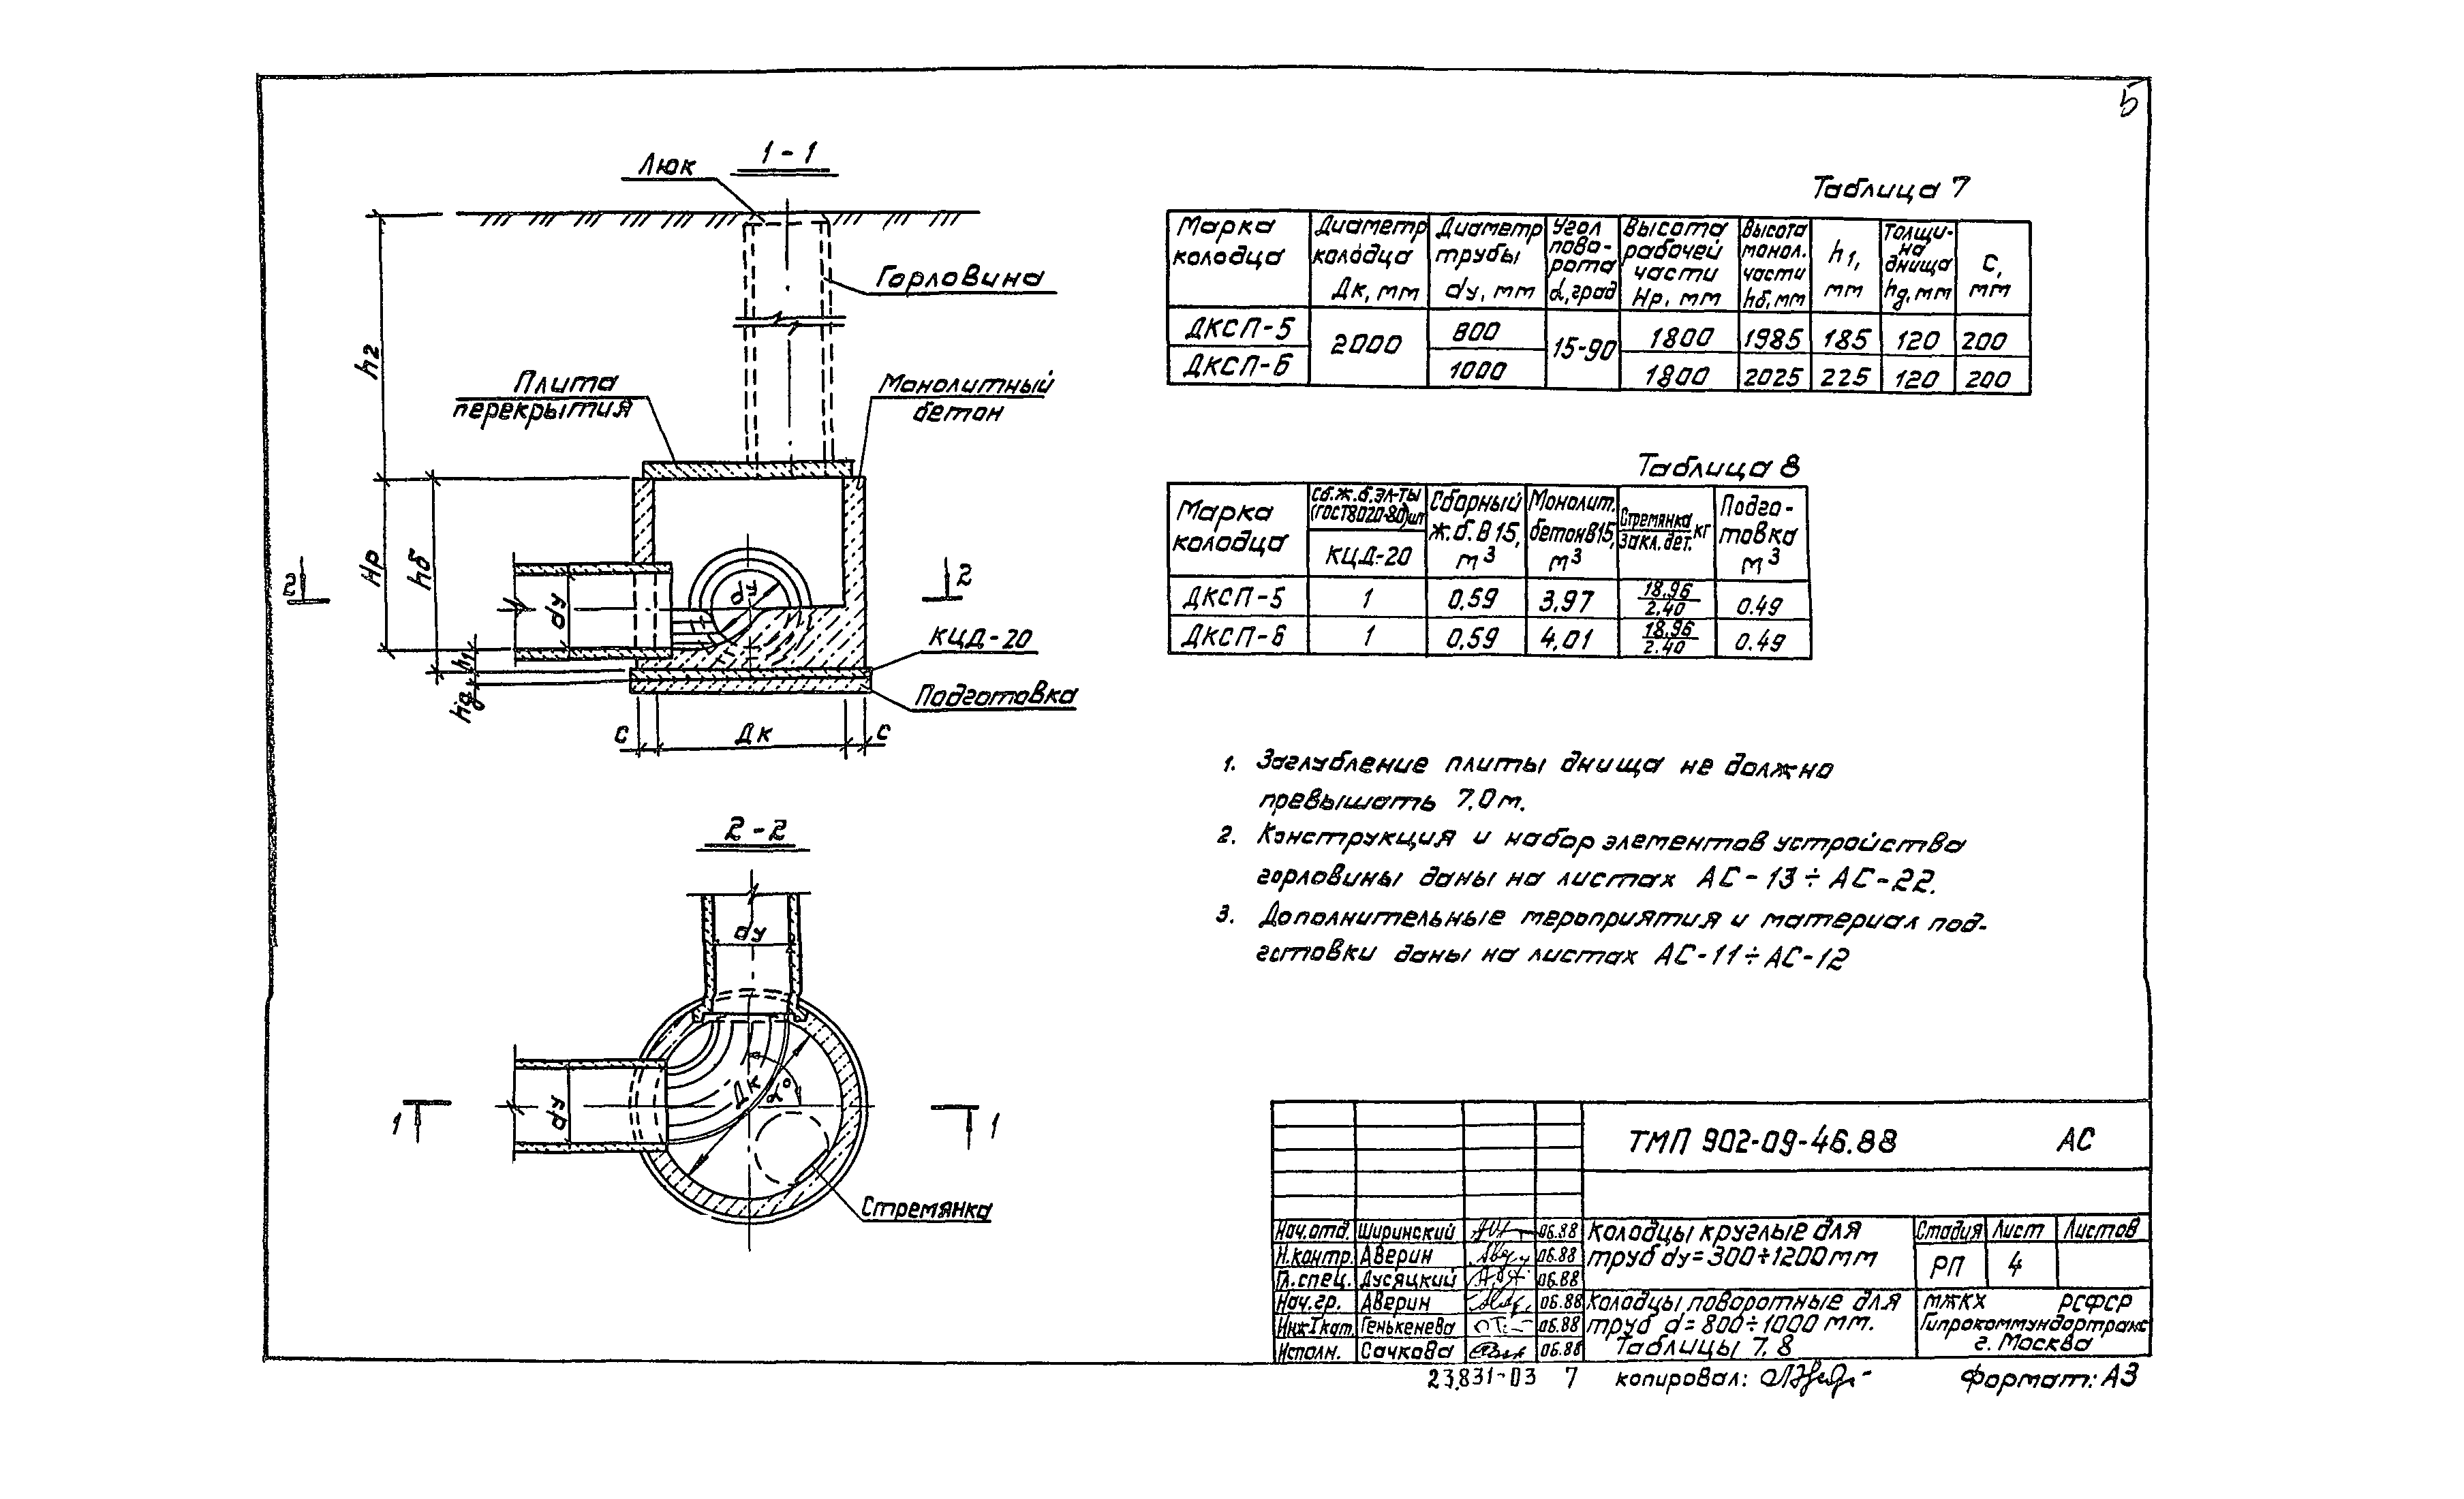 5
1-1
Люк
Горловина
Плита
перекрытия
Монолитный
бетон
h2
Нр
hб
h1
hд
dу
dу
2
2
КЦД-20
Подготовка
с
Дк
с
2-2
dу
dу
Дк
α°
1
1
Стремянка
Таблица 7
Марка колодца | Диаметр колодца Дк, мм | Диаметр трубы dу, мм | Угол пово-рота α, град | Высота рабочей части Нр, мм | Высота монол. части hб, мм | h1, мм | Толщи-на днища hд, мм | с, мм
ДКСП-5 | 2000 | 800 | 15-90 | 1800 | 1985 | 185 | 120 | 200
ДКСП-6 | 1000 | 1800 | 2025 | 225 | 120 | 200
Таблица 8
Марка колодца | Сб.ж.б.эл-ты (ГОСТ8020-80)шт | КЦД-20 | Сборный ж.б. В15, м3 | Монолит. бетон В15, м3 | Стремянка/Закл.дет. кг | Подго-товка м3
ДКСП-5 | 1 | 0,59 | 3,97 | 18.96/2.40 | 0.49
ДКСП-6 | 1 | 0,59 | 4,01 | 18.96/2.40 | 0.49
1. Заглубление плиты днища не должно
превышать 7,0 м.
2. Конструкция и набор элементов устройства
горловины даны на листах АС-13÷АС-22.
3. Дополнительные мероприятия и материал под-
готовки даны на листах АС-11÷АС-12
ТМП 902-09-46.88 АС
Нач.отд. Ширинский 06.88
Н.контр. Аверин 06.88
Гл.спец. Дусяцкий 06.88
Нач.гр. Аверин 06.88
Инж I кат. Генькенева 06.88
Исполн. Сачкова 06.88
Колодцы круглые для
труб dу=300÷1200 мм
Стадия Лист Листов
РП 4
Колодцы поворотные для
труб d=800÷1000 мм.
Таблицы 7, 8
МЖКХ РСФСР
Гипрокоммундортранс
г. Москва
23831-03 7 копировал: Формат: А3